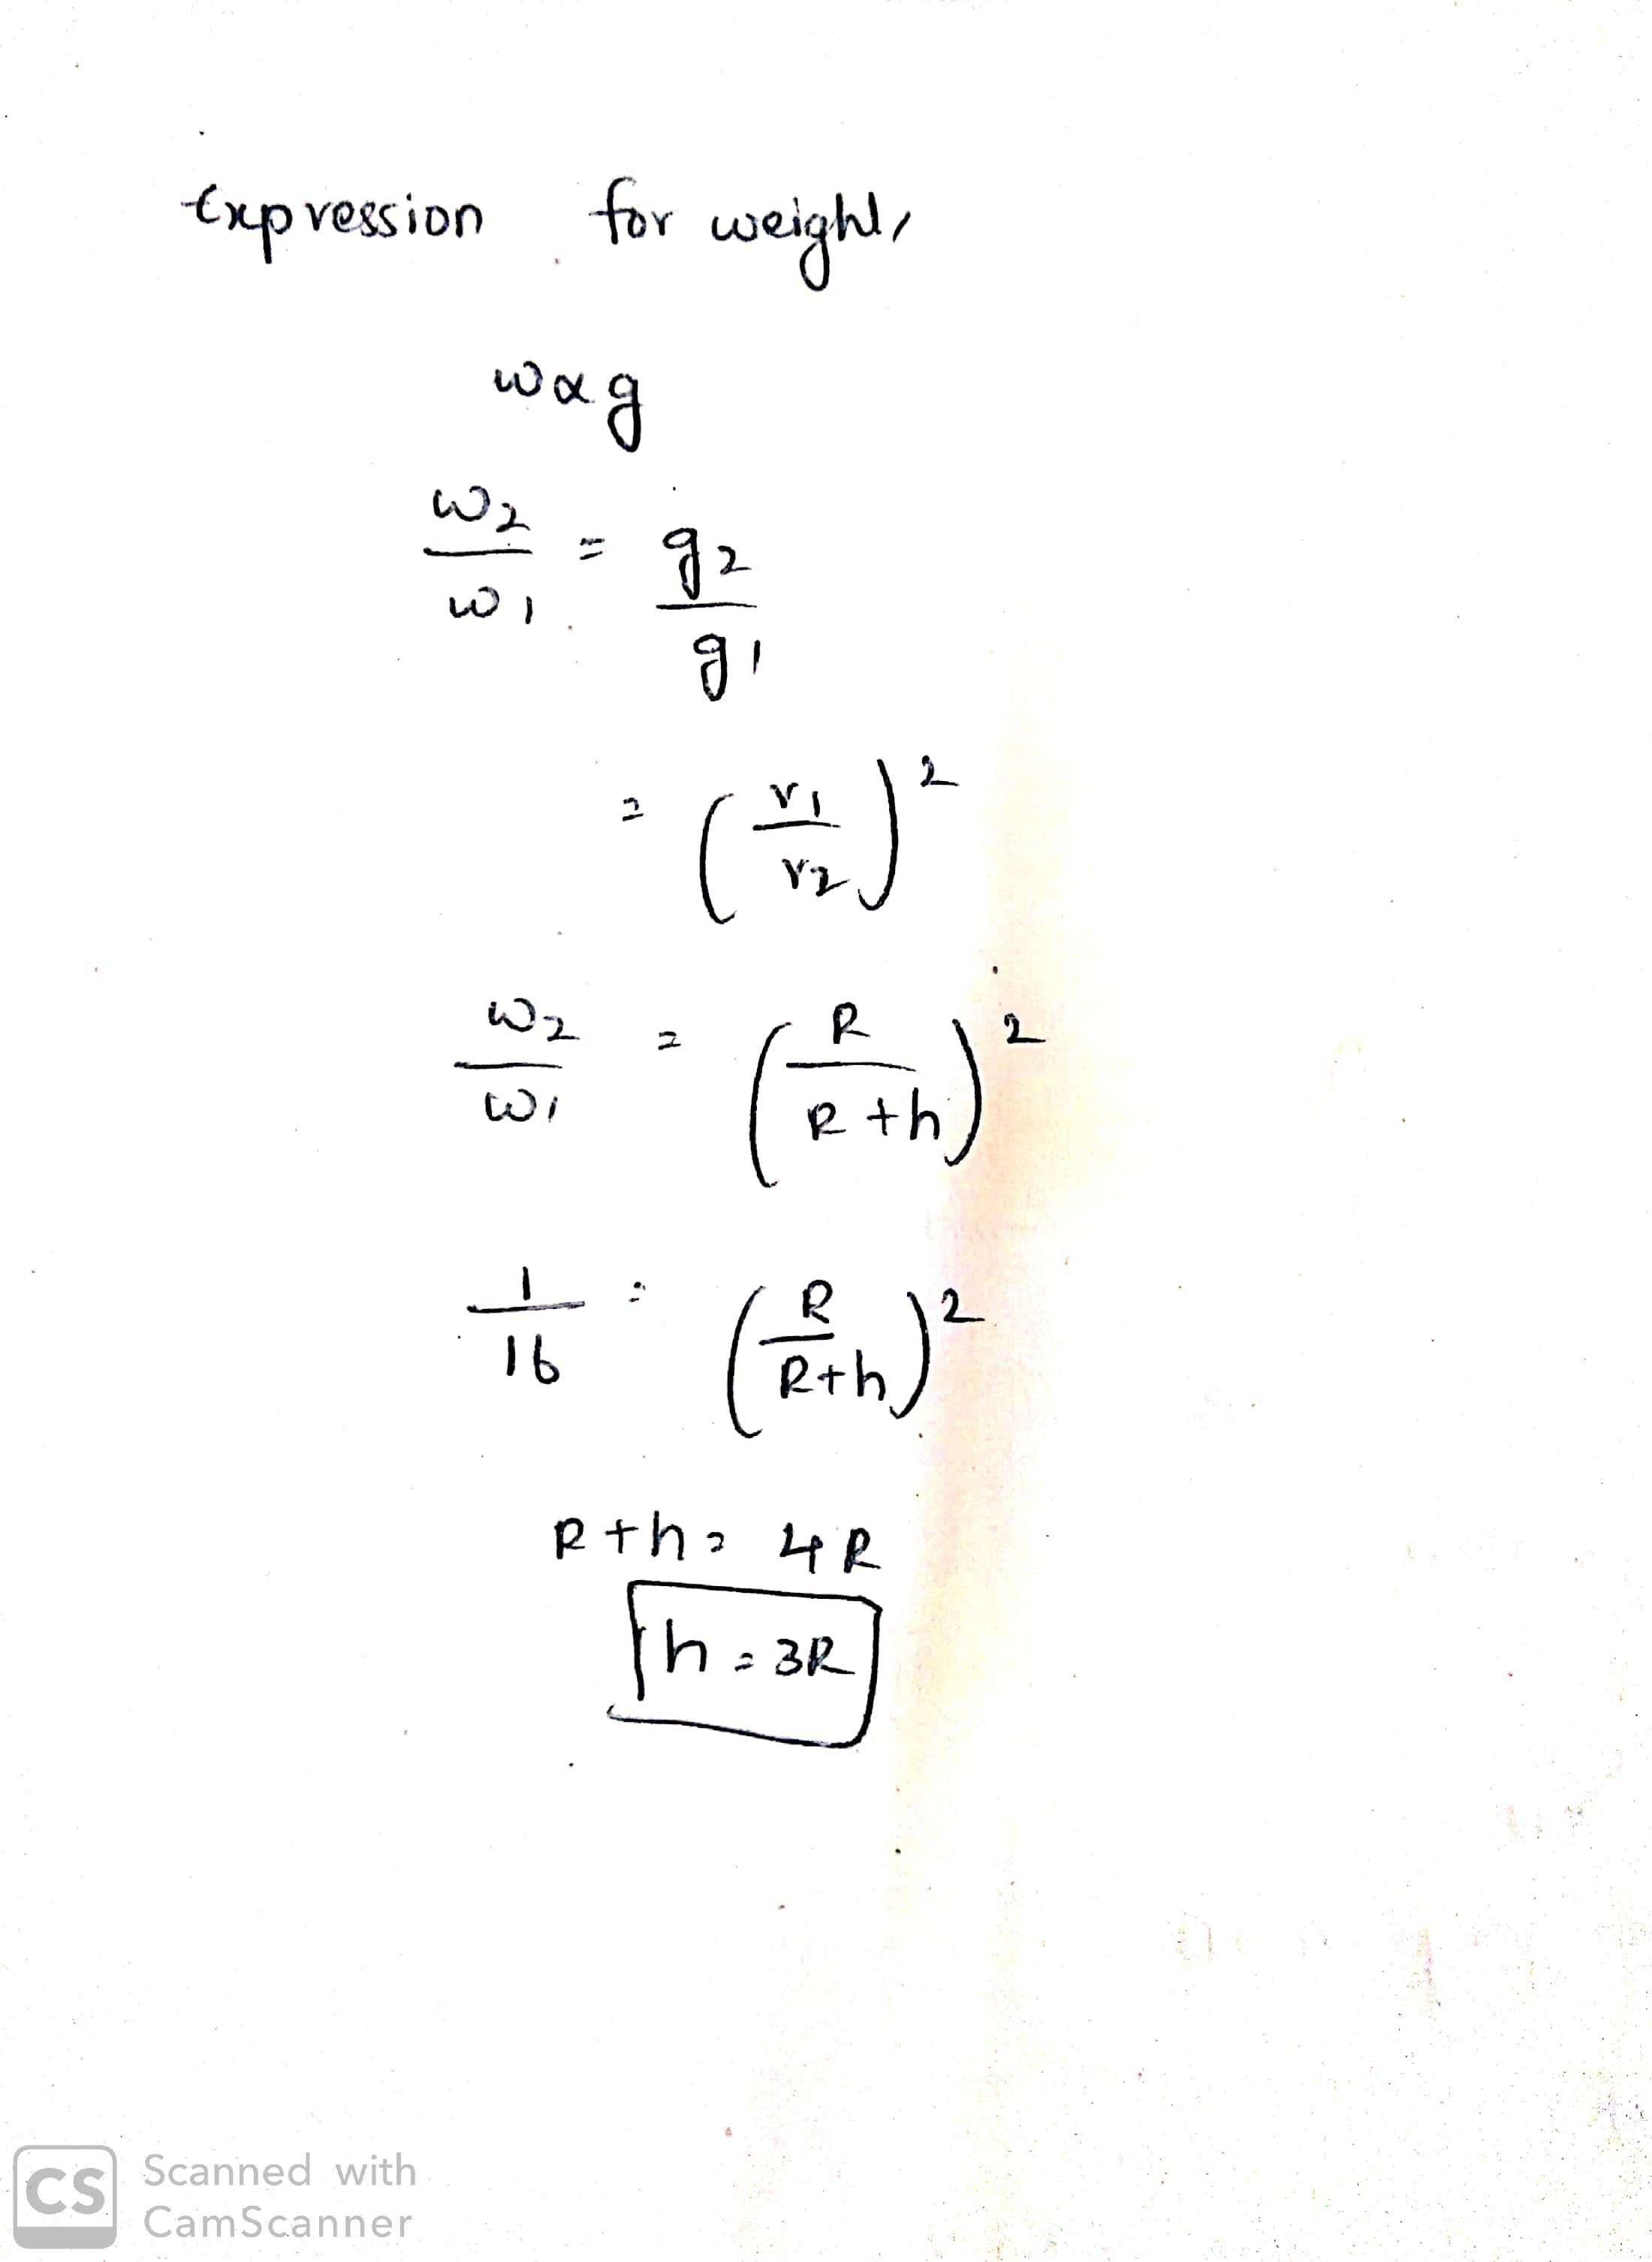 Expression for weight,
w α g
w2/w1 = g2/g1
= (r1/r2)^2
w2/w1 = (R/R+h)^2
1/16 = (R/R+h)^2
R+h = 4R
h = 3R
CS Scanned with
CamScanner